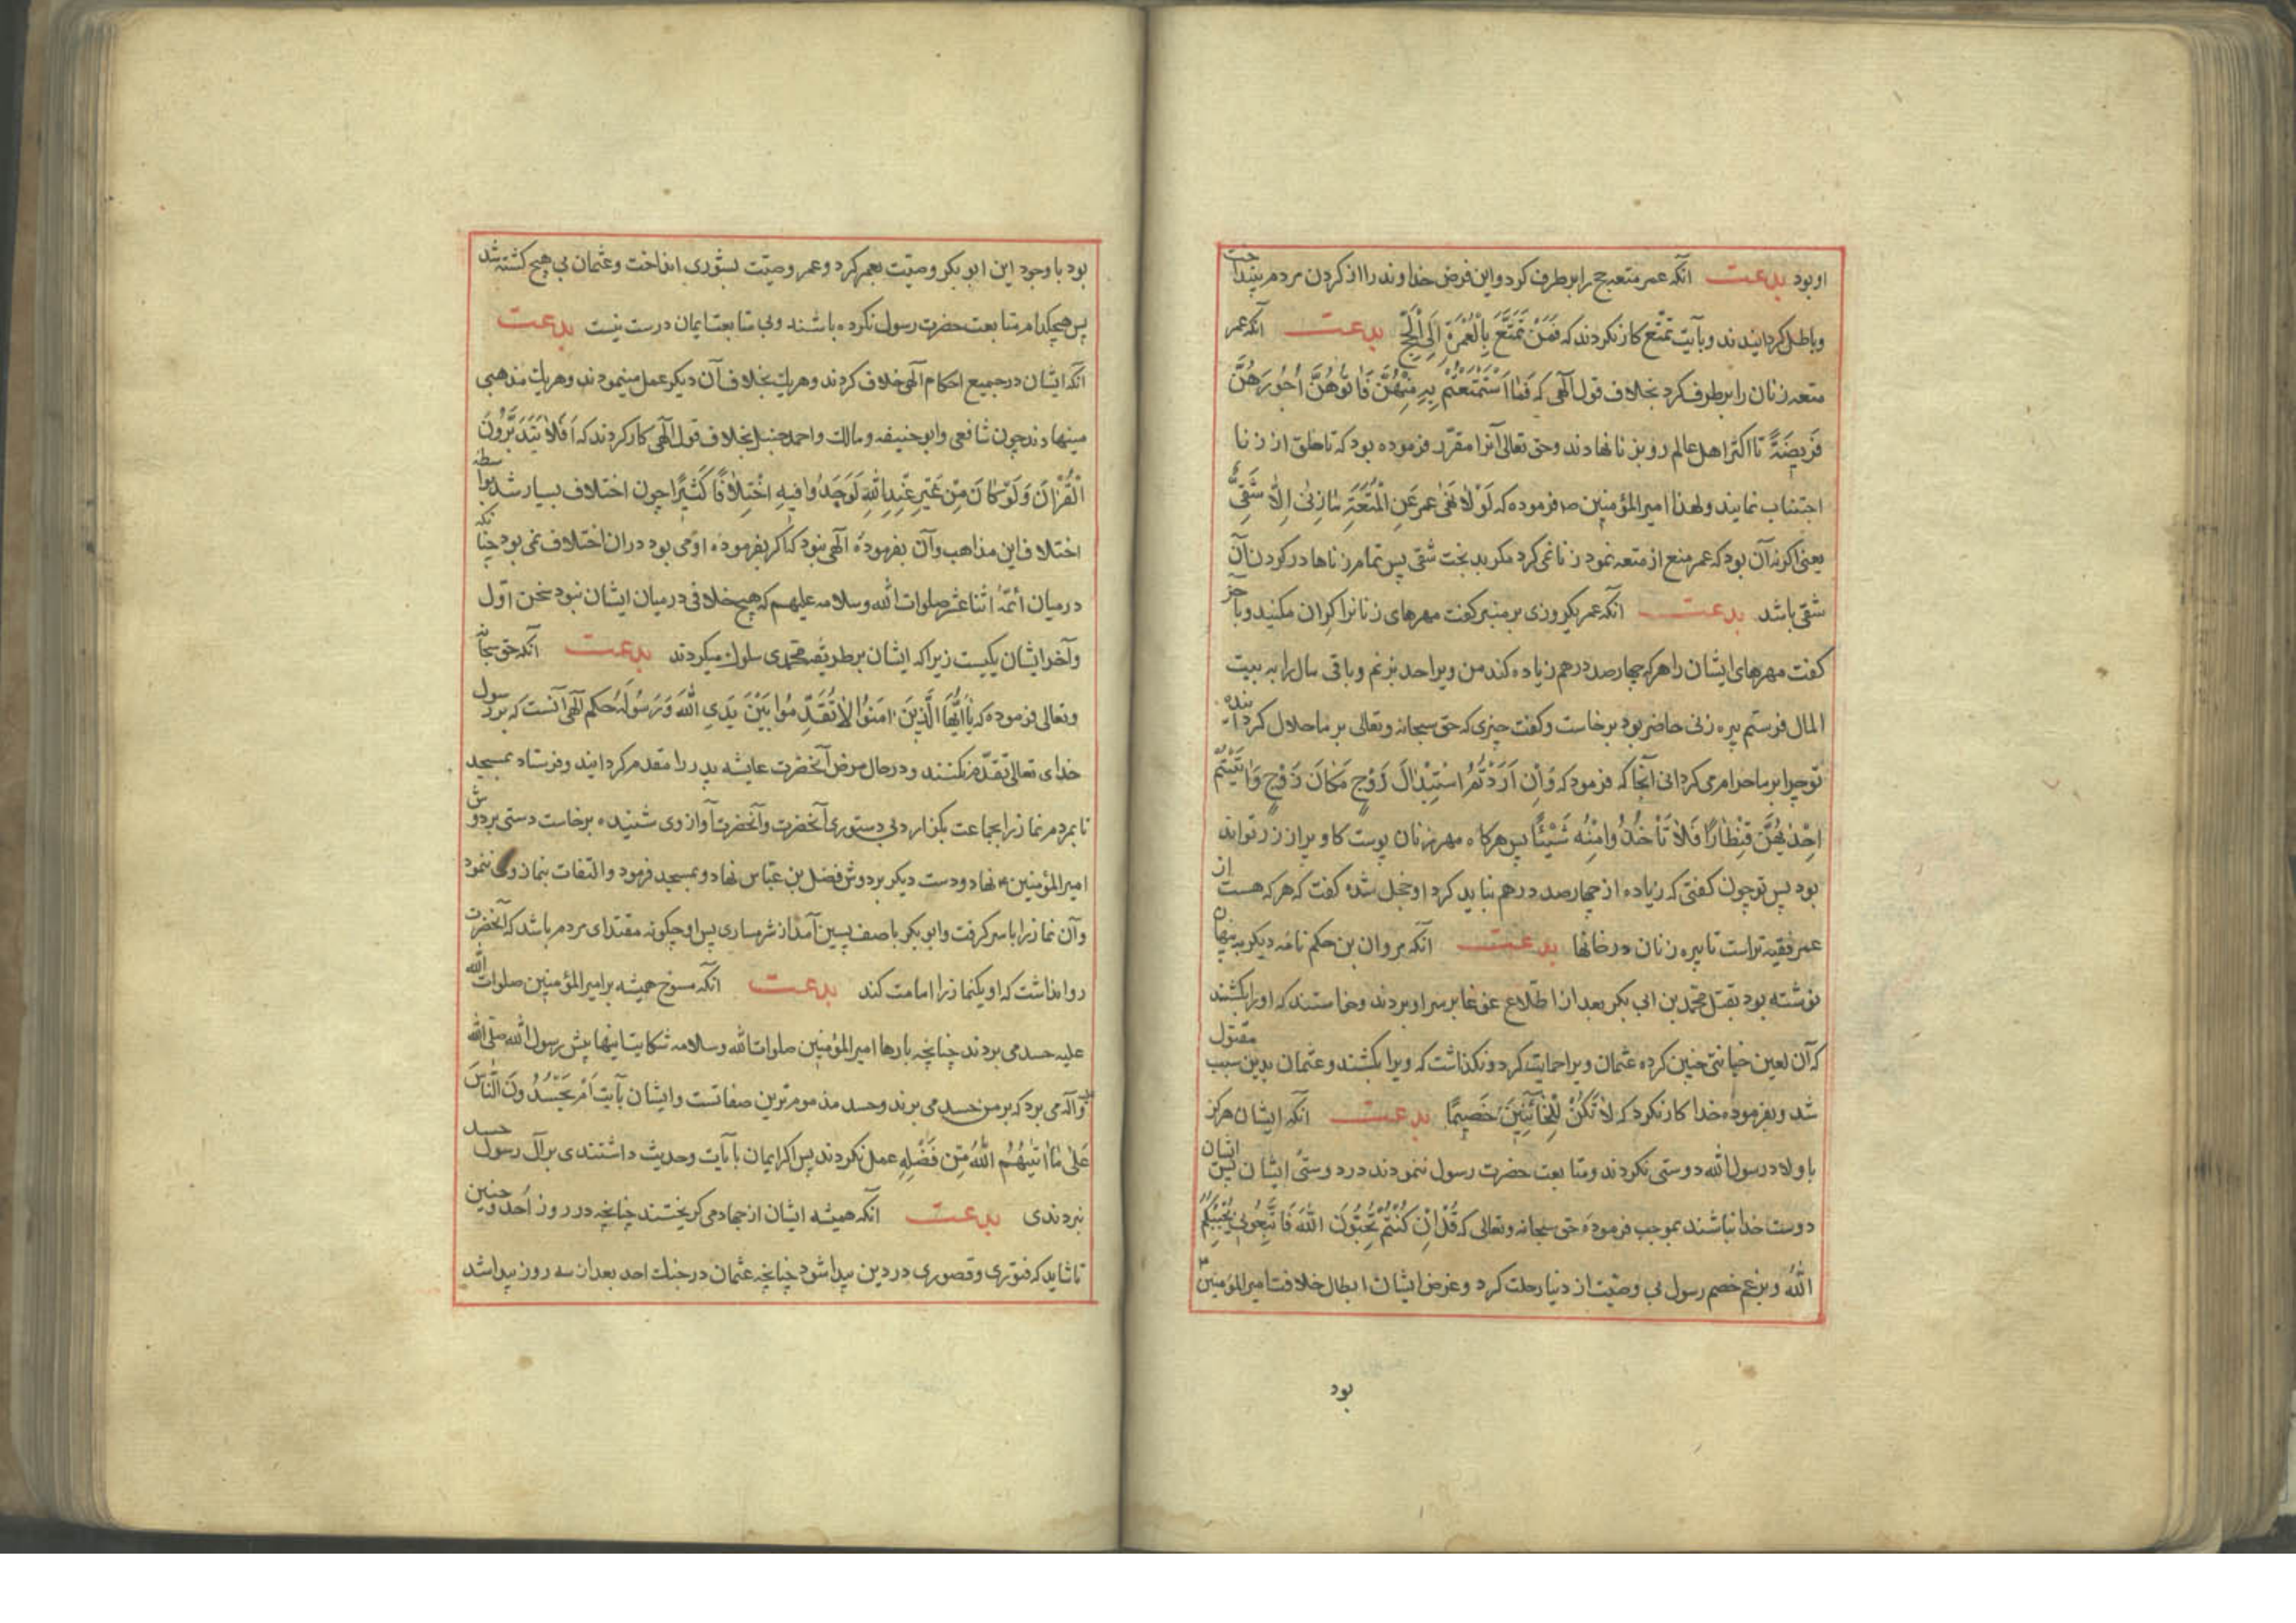 او بود بدعت آنکه عمر متعه حج را برطرف کرد و این فرض خداوند را از کردن مردم بینداخت
و باطل کردانیدند و بآیت تمتّع کار نکردند که فَمَنْ تَمَتَّعَ بِالْعُمْرَةِ اِلَی الْحَجِّ بدعت آنکه عمر
متعه زنان را برطرف کرد بخلاف قول آلهی که فَمَا اسْتَمْتَعْتُمْ بِهِ مِنْهُنَّ فَاٰتُوهُنَّ اُجُورَهُنَّ
فَرِیضَةً تا اکثر اهل عالم رو بزنا نهادند و حق تعالی آنرا مقرّر فرموده بود که تا خلق از زنا
اجتناب نمایند و لهذا امیرالمؤمنین ؏ فرموده که لَوْلَا نَهٰی عمر عَنِ الْمُتْعَةِ مٰا زَنیٰ اِلّٰا شَقِیٌّ
یعنی اکر نه آن بود که عمر منع از متعه نمود زنا نمی کرد مکر بدبخت شقی پس تمام زناها در کردن آن
شقی باشد بدعت آنکه عمر یکروزی بر منبر کفت مهرهای زنانرا کران مکنید و بآخر
کفت مهرهای ایشان را هرکه چهارصد درهم زیاده کند من ویرا حد بزنم و باقی مال را به بیت
المال فرستم پیره زنی حاضر بود برخاست و کفت چیزی که حق سبحانه و تعالی بر ما حلال کردانیده
تو چرا بر ما حرام می کردانی آنجا که فرمود که وَاِن اَرَدْتُمُ اسْتِبْدٰالَ زَوْجٍ مَکٰانَ زَوْجٍ وَاٰتَیْتُمْ
اِحْدٰیهُنَّ قِنْطٰارًا فَلٰا تَأْخُذُوا مِنْهُ شَیْئًا پس هرکاه مهر زنان پوست کاو پر از زر تواند
بود پس تو چون کفتی که زیاده از چهارصد درهم نباید کرد او خجل شده کفت که هرکه هست از
عمر فقیه تر است تا پیره زنان در خانها بدعت آنکه مروان بن حکم نامه دیکر به پنهان
نوشته بود بقتل محمّد بن ابی بکر بعد از اطّلاع غوغا بر سر او بردند و خواستند که او را بکشند
که آن لعین خیانتی چنین کرده عثمان ویرا حمایت کرد و نکذاشت که ویرا بکشند و عثمان بدین سبب مقتول
شد و بفرموده خدا کار نکرد که لٰا تَکُنْ لِلْخٰائِنِینَ خَصِیمًا بدعت آنکه ایشان هرکز
با اولاد رسول الله دوستی نکردند و متابعت حضرت رسول ننمودند در دوستی ایشان پس ایشان
دوست خدا نباشند بموجب فرمودۀ حق سبحانه و تعالی که قُلْ اِنْ کُنْتُمْ تُحِبُّونَ اللهَ فَاتَّبِعُونِی یُحْبِبْکُمُ
اللهُ و بزعم خصم رسول بی وصیّت از دنیا رحلت کرد و غرض ایشان ابطال خلافت امیرالمؤمنین ؏
بود
بود با وجود این ابو بکر وصیّت بعمر کرد و عمر وصیّت بشوری انداخت و عثمان بی هیچ کشته شد
پس هیچکدام متابعت حضرت رسول نکرده باشند و بی متابعت ایمان درست نیست بدعت
آنکه ایشان در جمیع احکام آلهی خلاف کردند و هریک بخلاف آن دیکر عمل مینمودند و هریک مذهبی
مینهادند چون شافعی و ابو حنیفه و مالک و احمد حنبل بخلاف قول آلهی کار کردند که اَفَلٰا یَتَدَبَّرُونَ
الْقُرْاٰنَ وَلَوْ کٰانَ مِنْ غَیْرِ عِنْدِ اللهِ لَوَجَدُوا فِیهِ اخْتِلٰافًا کَثِیرًا چون اختلاف بسیار شد بواسطه
اختلاف این مذاهب و آن بفرمودۀ آلهی نبود که اکر بفرمودۀ او می بود در ان اختلاف نمی بود چنانکه
در میان ائمّۀ اثنا عشر صلوات الله و سلامه علیهم که هیچ خلافی در میان ایشان نبود سخن اوّل
و آخر ایشان یکیست زیرا که ایشان بر طریقه محمّدی سلوک میکردند بدعت آنکه حق سبحانه
و تعالی فرموده که یٰا اَیُّهَا الَّذِینَ اٰمَنُوا لٰا تُقَدِّمُوا بَیْنَ یَدَیِ اللهِ وَرَسُولِهِ حکم آلهی آنست که بر رسول
خدای تعالی تقدّم نکنند و در حال مرض آنحضرت عایشه پدر را مقدم کردانید و فرستاد بمسجد
تا بمردم نماز را بجماعت بکزارد بی دستوری آنحضرت و آنحضرت آواز وی شنیده برخاست دستی بر دوش
امیرالمؤمنین ؏ نهاد و دست دیکر بر دوش فضل بن عبّاس نهاد و بمسجد فرمود و التفات بنماز وی ننمود
و آن نماز را با سر کرفت و ابو بکر با صف پسین آمد از شرمساری پس او چکونه مقتدای مردم باشد که آنحضرت
روا نداشت که او یکنماز را امامت کند بدعت آنکه مسوخ همیشه بر امیرالمؤمنین صلوات الله
علیه حسد می بردند چنانچه بارها امیرالمؤمنین صلوات الله و سلامه شکایت اینها پیش رسول الله صلّی الله
علیه وآله می برد که بر من حسد می برند و حسد مذموم ترین صفاتست و ایشان بآیت اَمْ یَحْسُدُونَ النّٰاسَ
عَلیٰ مٰا اٰتٰیهُمُ اللهُ مِنْ فَضْلِهِ عمل نکردند پس اکر ایمان بآیات و حدیث داشتندی بر آل رسول حسد
نبردندی بدعت آنکه همیشه ایشان از جهاد می کریختند چنانچه در روز اُحُد و حنین
تا شاید که فتوری و قصوری در دین پیدا شود چنانچه عثمان در جنک احد بعد از سه روز پیدا شد